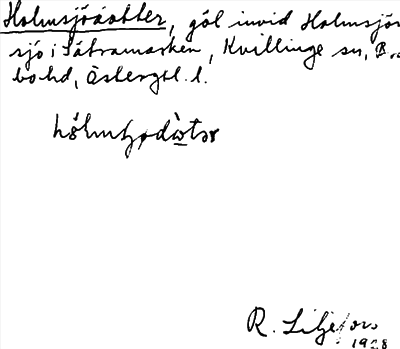 Holmsjödotter, göl invid Holmsjön
sjö i Sätramarken, Kvillinge sn, B
bo hd, Östergtl. l.
R. Liljefors
1928